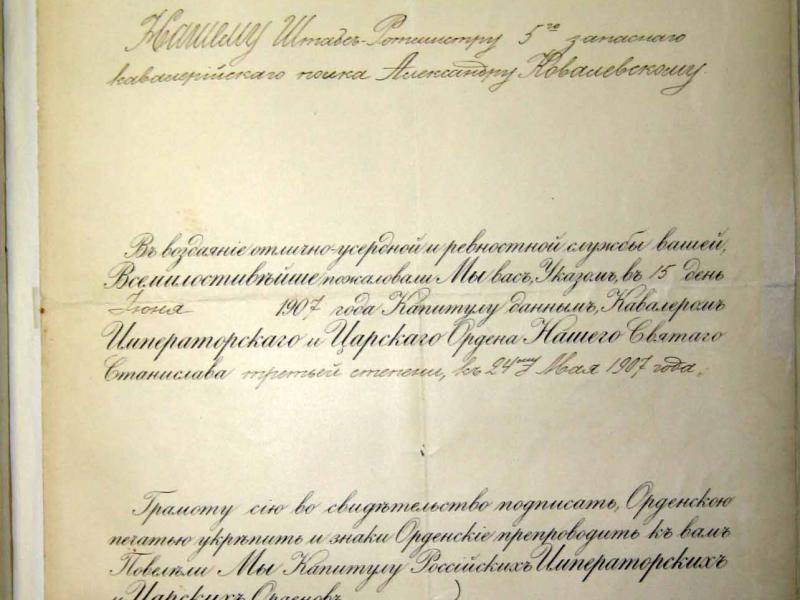 Нашему Штабсъ-Ротмистру 5го запаснаго
кавалерійскаго полка Александру Ковалевскому.
Въ воздаяніе отлично-усердной и ревностной службы вашей,
Всемилостивѣйше пожаловали Мы васъ, Указомъ, въ 15 день
Іюня 1907 года Капитулу даннымъ, Кавалеромъ
Императорскаго и Царскаго Ордена Нашего Святаго
Станислава третьей степени, къ 24му Мая 1907 года.
Грамоту сію во свидѣтельство подписать, Орденскою
печатью укрѣпить и знаки Орденскіе препроводить къ вамъ
Повелѣли Мы Капитулу Россійскихъ Императорскихъ
и Царскихъ Орденовъ.